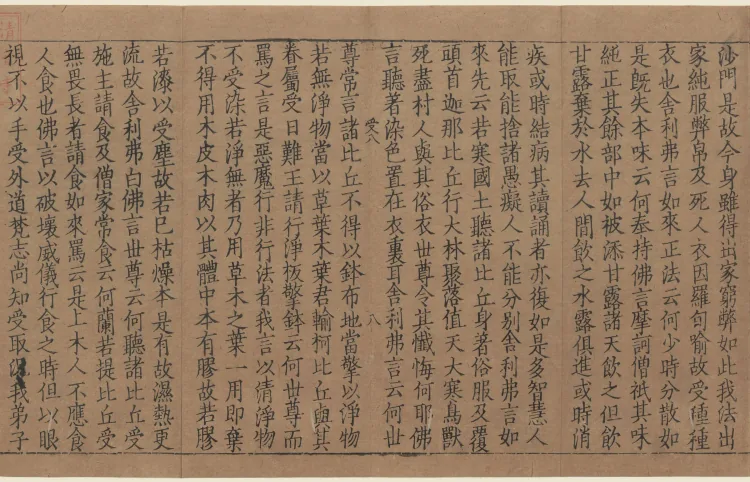 沙門是故今身雖得出家窮弊如此我法出
家純服弊帛及死人衣因羅旬喻故受種種
衣也舍利弗言如來正法云何少時分散如
是既失本味云何奉持佛言摩訶僧祇其味
純正其餘部中如被添甘露諸天飲之但飲
甘露棄於水去人間飲之水露俱進或時消
疾或時結病其讀誦者亦復如是多智慧人
能取能捨諸愚癡人不能分别舍利弗言如
來先云若寒國土聽諸比丘身著俗服及覆
頭首迦那比丘行大林聚落值天大寒鳥獸
死盡村人與其俗衣世尊令其懺悔何耶佛
言聽著染色置在衣裏耳舍利弗言云何世
受八
八
尊常言諸比丘不得以鉢布地當擎以淨物
若無淨物當以草葉木葉君輸柯比丘與其
眷屬受日難王請行淨板擎鉢云何世尊而
罵之言是惡魔行非行法者我言以清淨物
不受染若淨無者乃用草木之葉一用即棄
不得用木皮木肉以其體中本有膠故若膠
若漆以受塵故若已枯燥本是有故濕熱更
流故舍利弗白佛言世尊云何聽諸比丘受
施主請食及僧家常食云何蘭若提比丘受
無畏長者請食如來罵云是上木人不應食
人食也佛言以破壞威儀行食之時但以眼
視不以手受外道梵志尚知受取我弟子